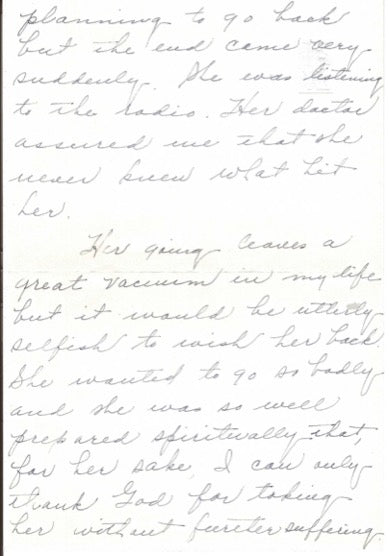 planning to go back
but the end came very
suddenly. She was listening
to the radio. Her doctor
assured me that she
never knew what hit
her.
Her going leaves a
great vacuum in my life
but it would be utterly
selfish to wish her back.
She wanted to go so badly
and she was so well
prepared spiritually that,
for her sake, I can only
thank God for taking
her without further suffering.